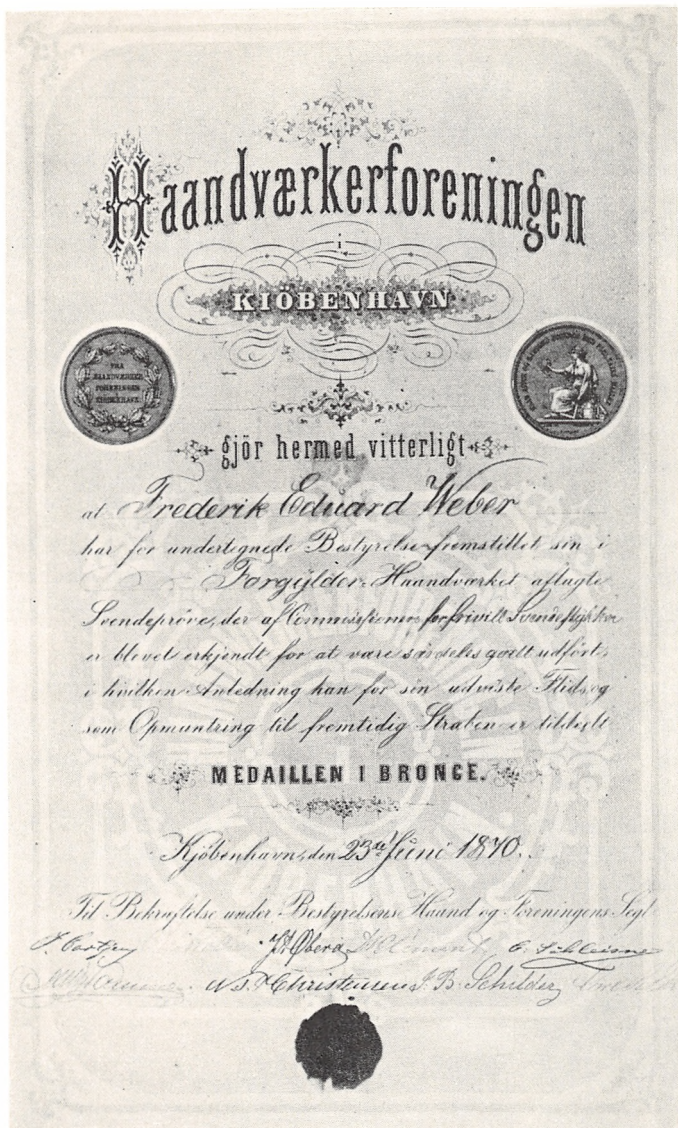 Haandværkerforeningen
i
KIÖBENHAVN
FRA
HAANDVÆRKER
FORENINGEN
KIÖBENHAVN.
gjör hermed vitterligt
at Frederik Eduard Weber
har for undertegnede Bestyrelse fremstillet sin i
Forgylder-Haandværket aflagte
Svendepröve, der af Commissionen for frivilt Svendestykker
er blevet erkjendt for at være særdeles godt udført,
i hvilken Anledning han for sin udviste Flid og
som Opmuntring til fremtidig Stræben er tildeelt
MEDAILLEN I BRONCE.
Kjøbenhavn, den 23de Juni 1870.
Til Bekræftelse under Bestyrelsens Haand og Foreningens Segl
Christensen J. B. Schilder